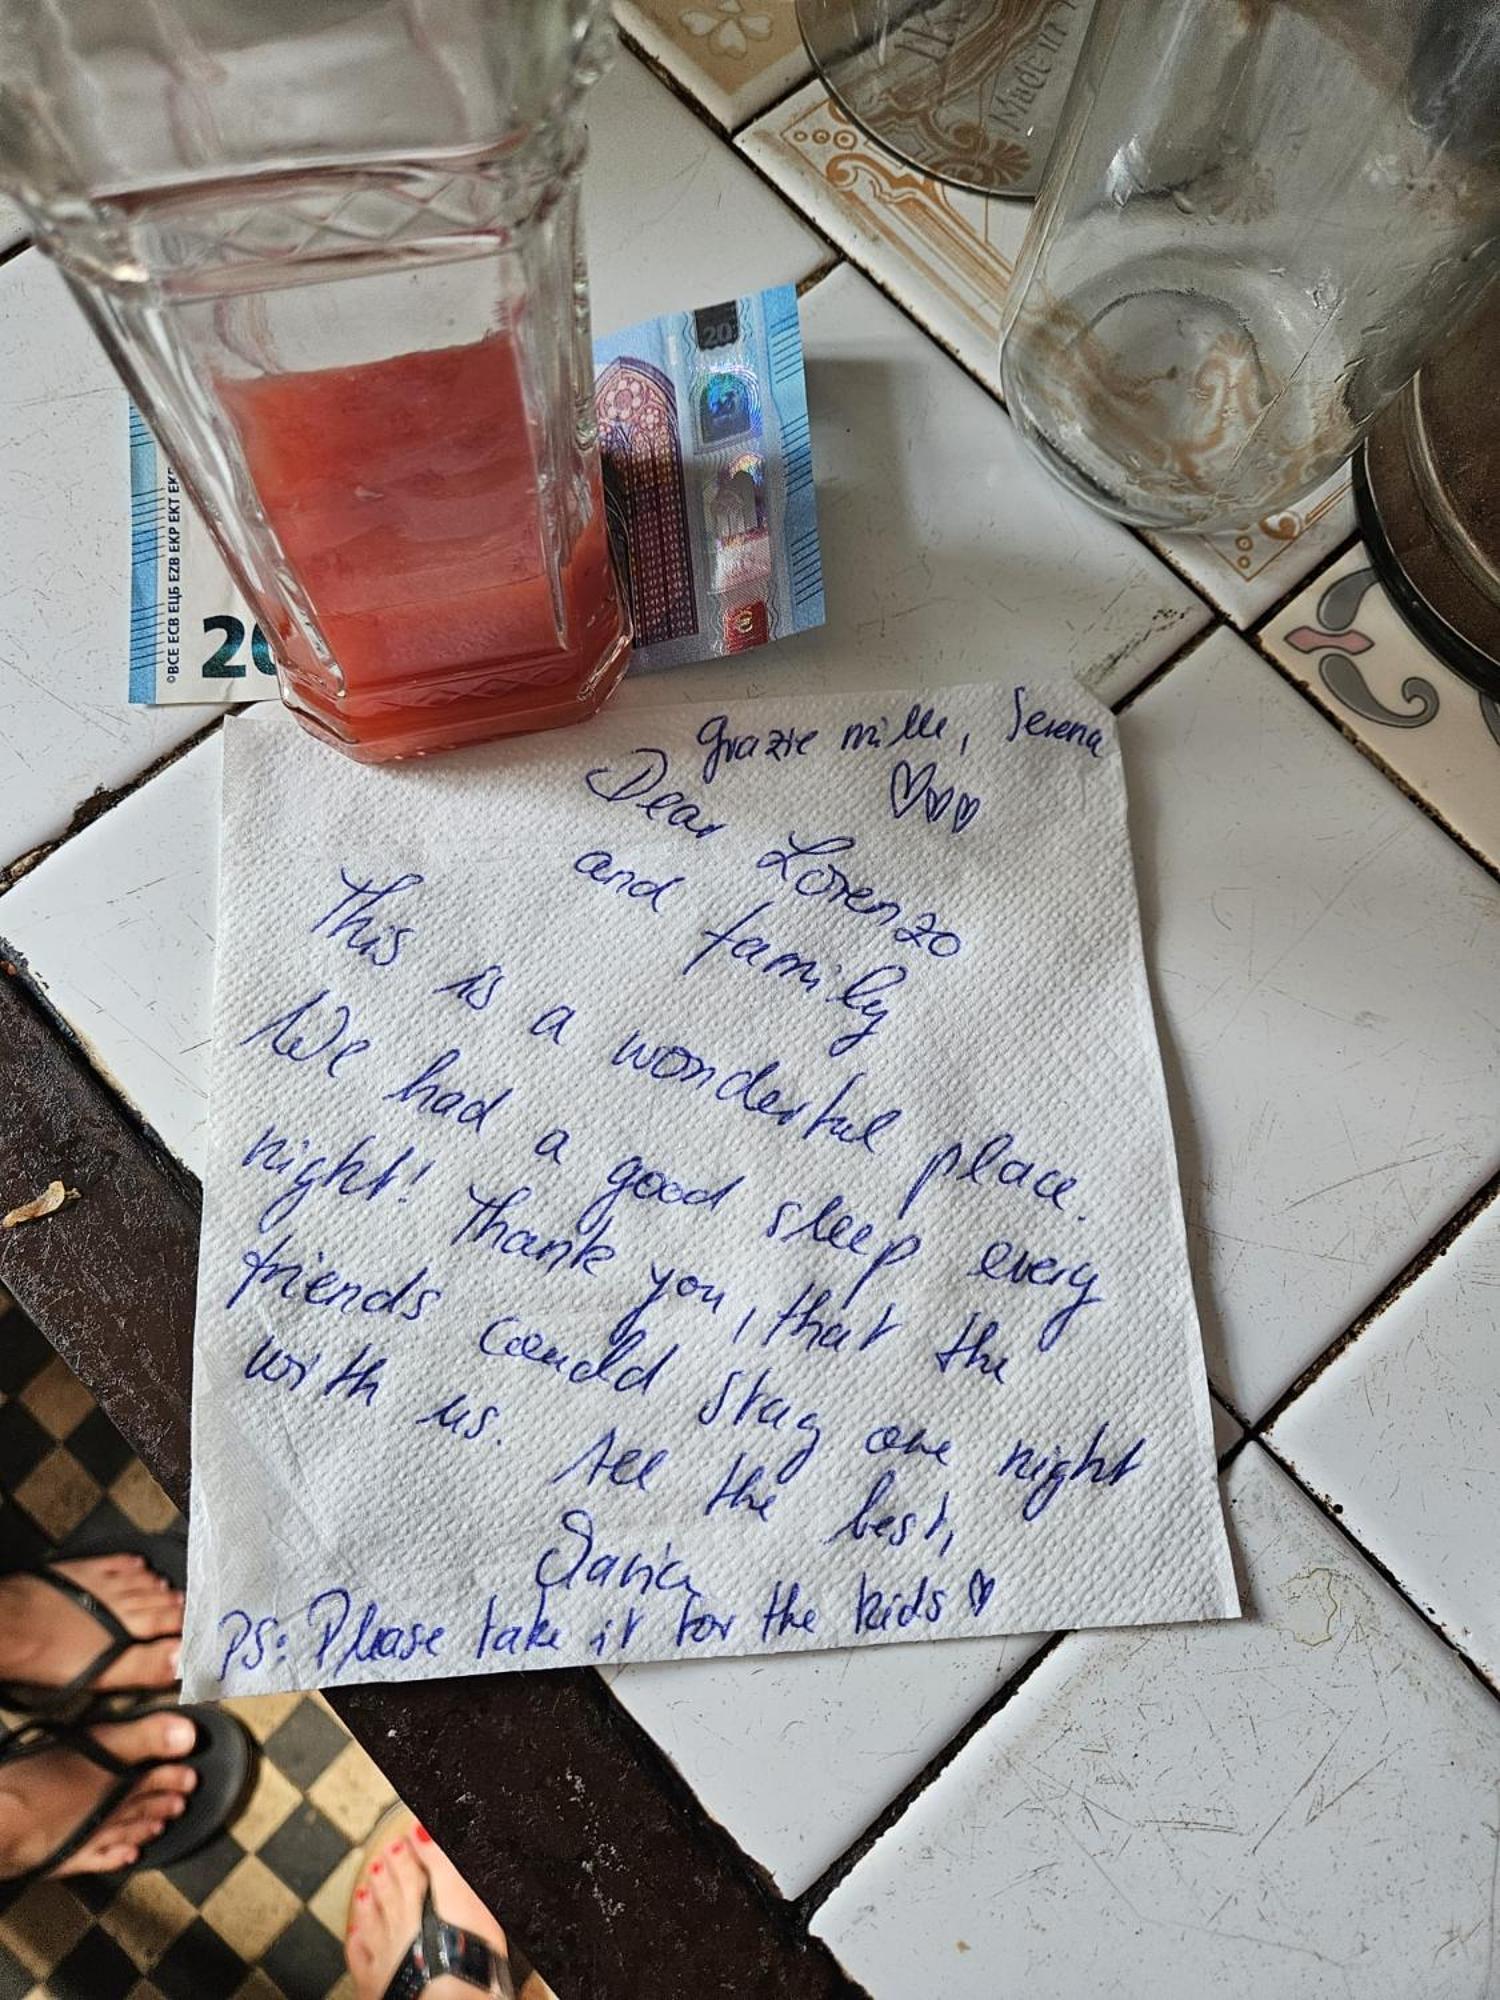 Made in
20
©BCE ECB ЕЦБ EZB EKP EKT
20
grazie mille, Serena
Dear Lorenzo
and family
This is a wonderful place.
We had a good sleep every
night! Thank you, that the
friends could stay one night
with us. All the best,
PS: Please take it for the kids